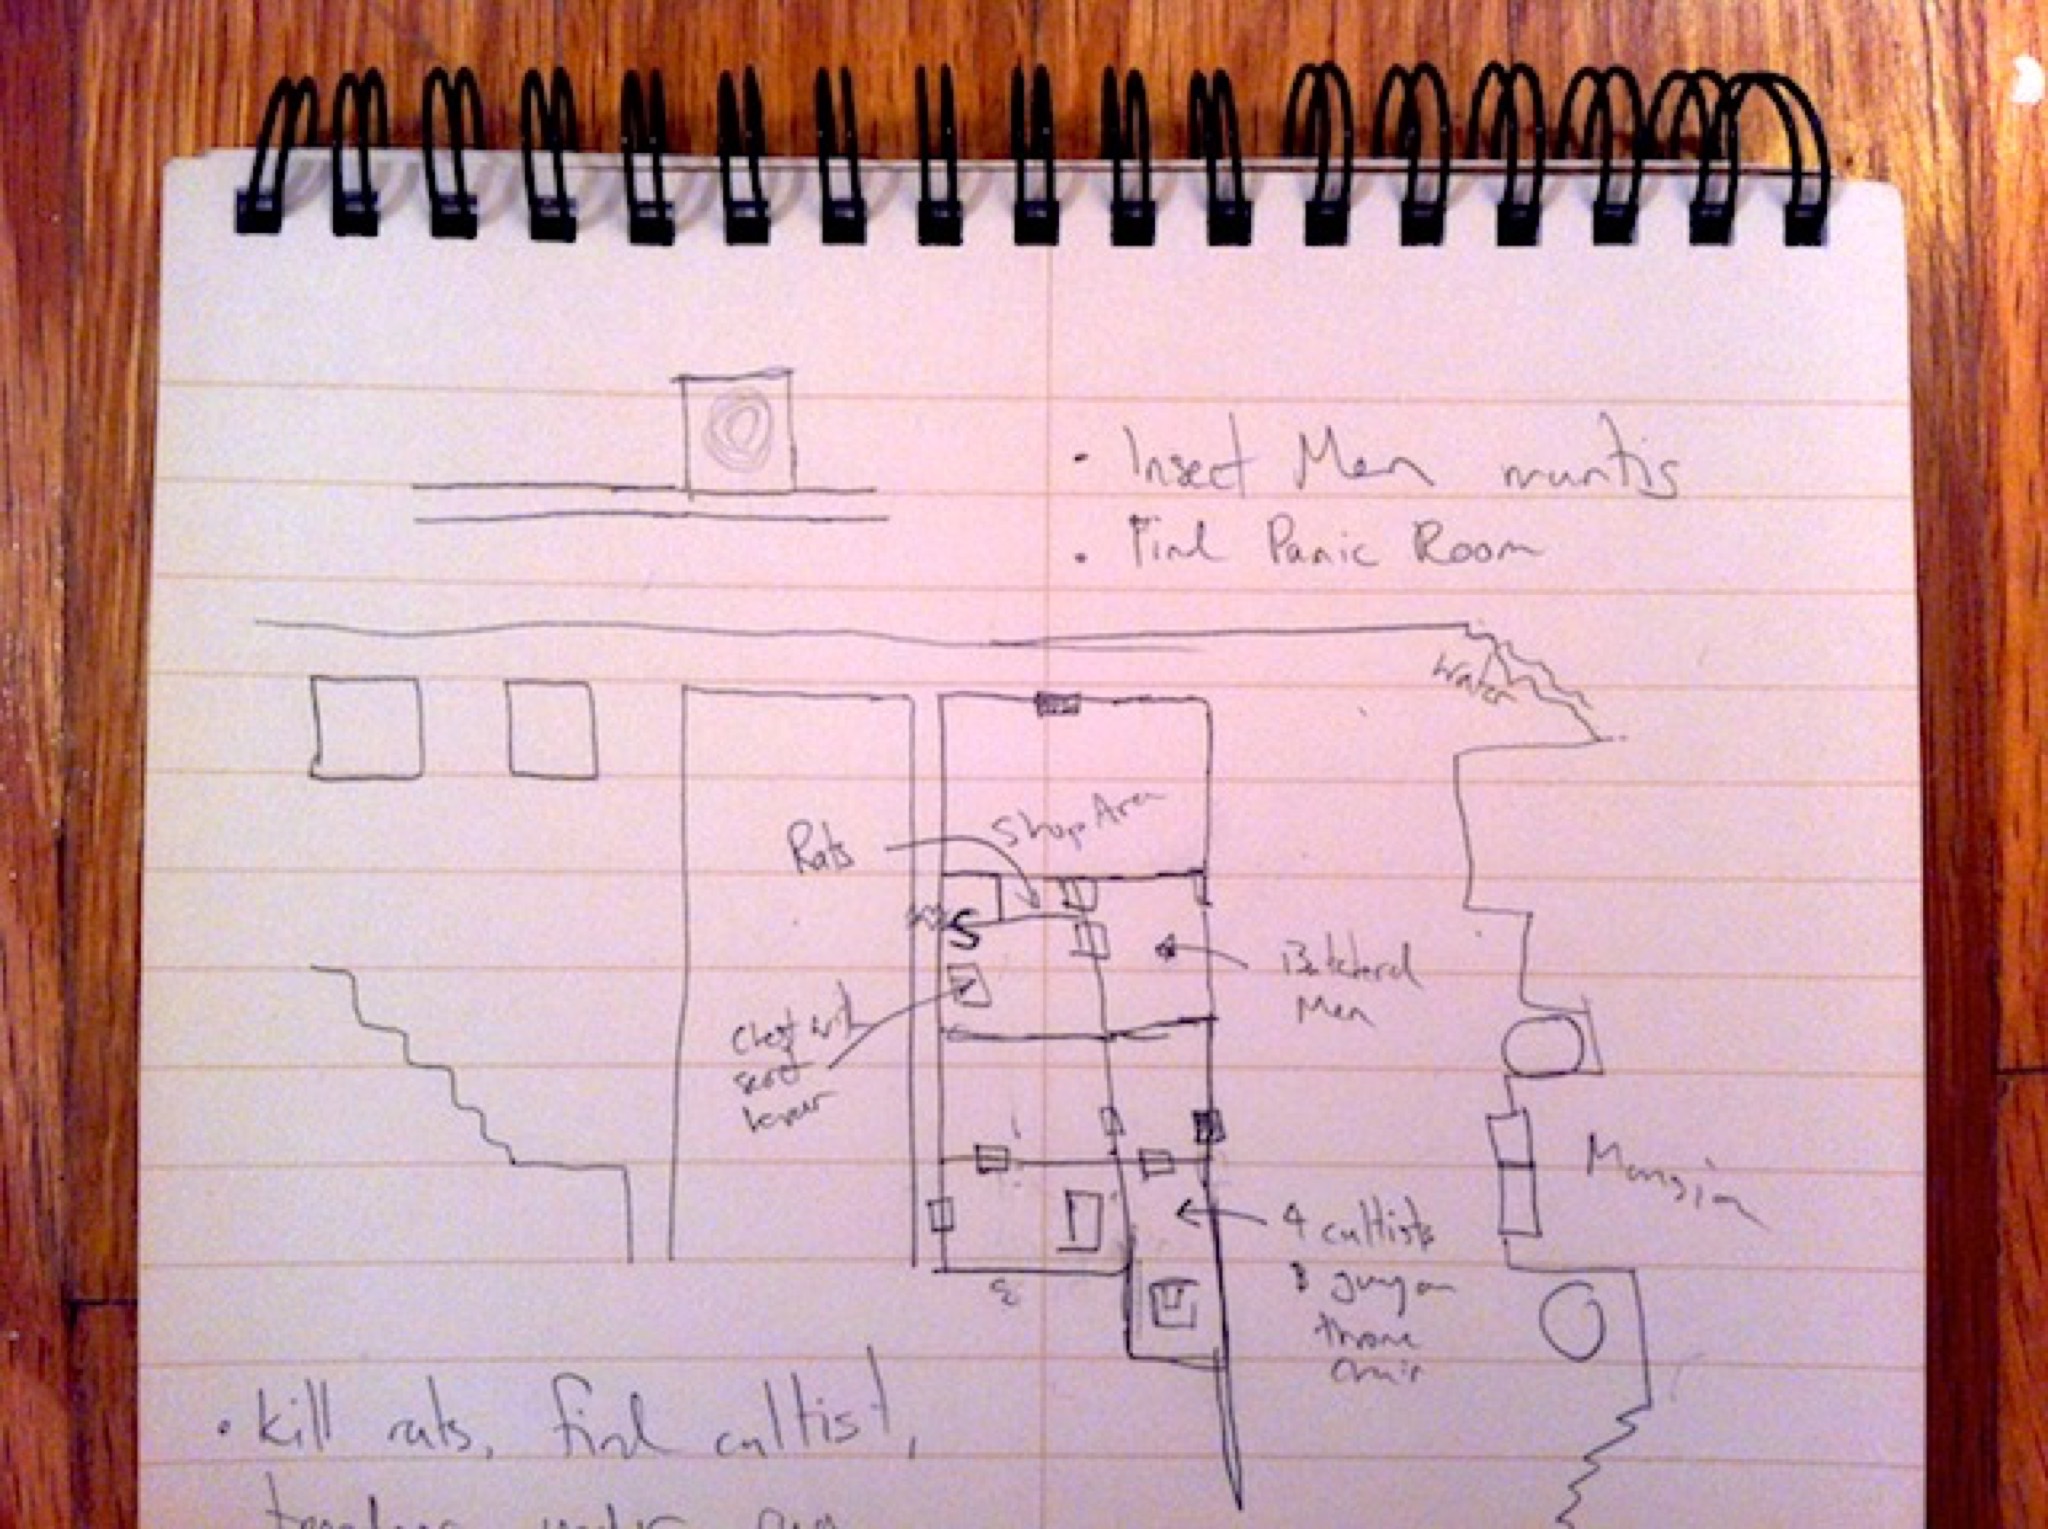 • Insect Men mantis
• Find Panic Room
Water
Shop Area
Rats
S
Butchered
Men
Chest with
secret
lever
Mansion
4 cultists
& guy on
throne
chair
• Kill rats, find cultist,
under rug